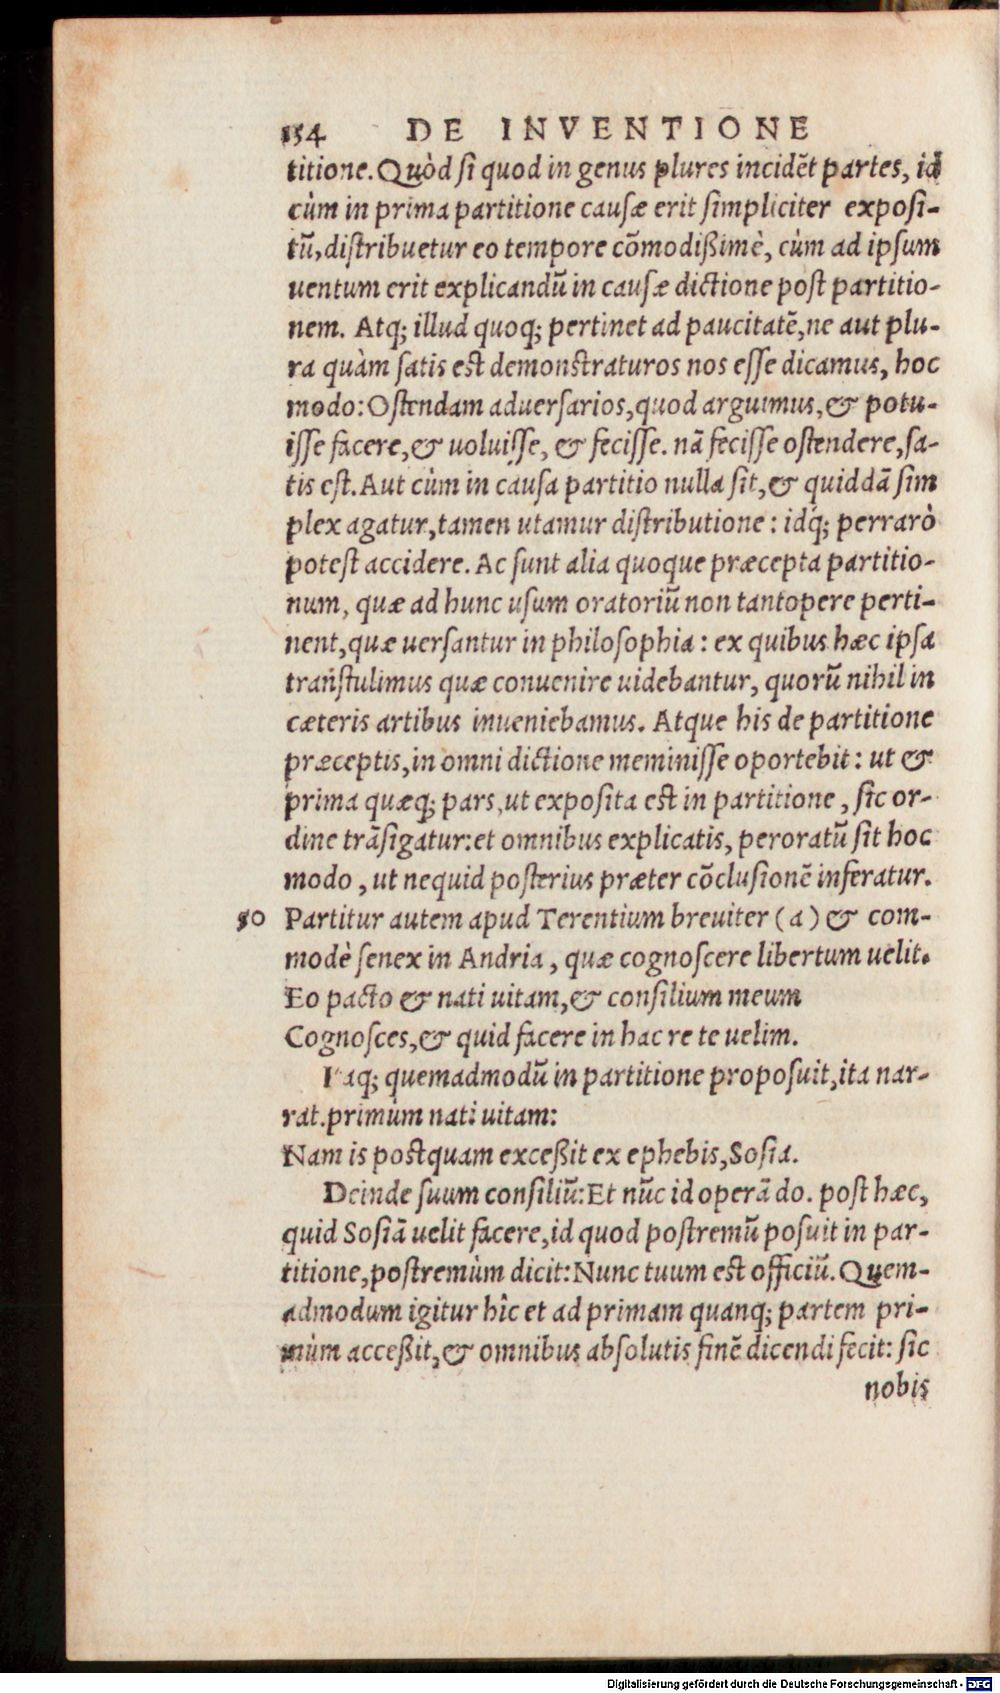 154 DE INVENTIONE
titione. Quòd si quod in genus plures incidēt partes, id
cùm in prima partitione causæ erit simpliciter exposi-
tū, distribuetur eo tempore cōmodißimè, cùm ad ipsum
uentum erit explicandū in causæ dictione post partitio-
nem. Atq; illud quoq; pertinet ad paucitatē, ne aut plu-
ra quàm satis est demonstraturos nos esse dicamus, hoc
modo: Ostendam aduersarios, quod arguimus, & potu-
isse facere, & uoluisse, & fecisse. nā fecisse ostendere, sa-
tis est. Aut cùm in causa partitio nulla sit, & quiddā sim
plex agatur, tamen utamur distributione: idq́; perrarò
potest accidere. Ac sunt alia quoque præcepta partitio-
num, quæ ad hunc usum oratoriū non tantopere perti-
nent, quæ uersantur in philosophia: ex quibus hæc ipsa
transtulimus quæ conuenire uidebantur, quorū nihil in
cæteris artibus inueniebamus. Atque his de partitione
præceptis, in omni dictione meminisse oportebit: ut &
prima quæq; pars, ut exposita est in partitione, sic or-
dine trāsigatur: et omnibus explicatis, peroratū sit hoc
modo, ut nequid posterius præter cōclusionē inferatur.
50 Partitur autem apud Terentium breuiter (a) & com-
modè senex in Andria, quæ cognoscere libertum uelit.
Eo pacto & nati uitam, & consilium meum
Cognosces, & quid facere in hac re te uelim.
Itaq; quemadmodū in partitione proposuit, ita nar-
rat. primùm nati uitam:
Nam is postquam exceßit ex ephebis, Sosia.
Deinde suum consiliū: Et nūc id operā do. post hæc,
quid Sosiā uelit facere, id quod postremū posuit in par-
titione, postremùm dicit: Nunc tuum est officiū. Quem-
admodum igitur hîc et ad primam quanq; partem pri-
mùm acceßit, & omnibus absolutis finē dicendi fecit: sic
nobis
Digitalisierung gefördert durch die Deutsche Forschungsgemeinschaft - DFG